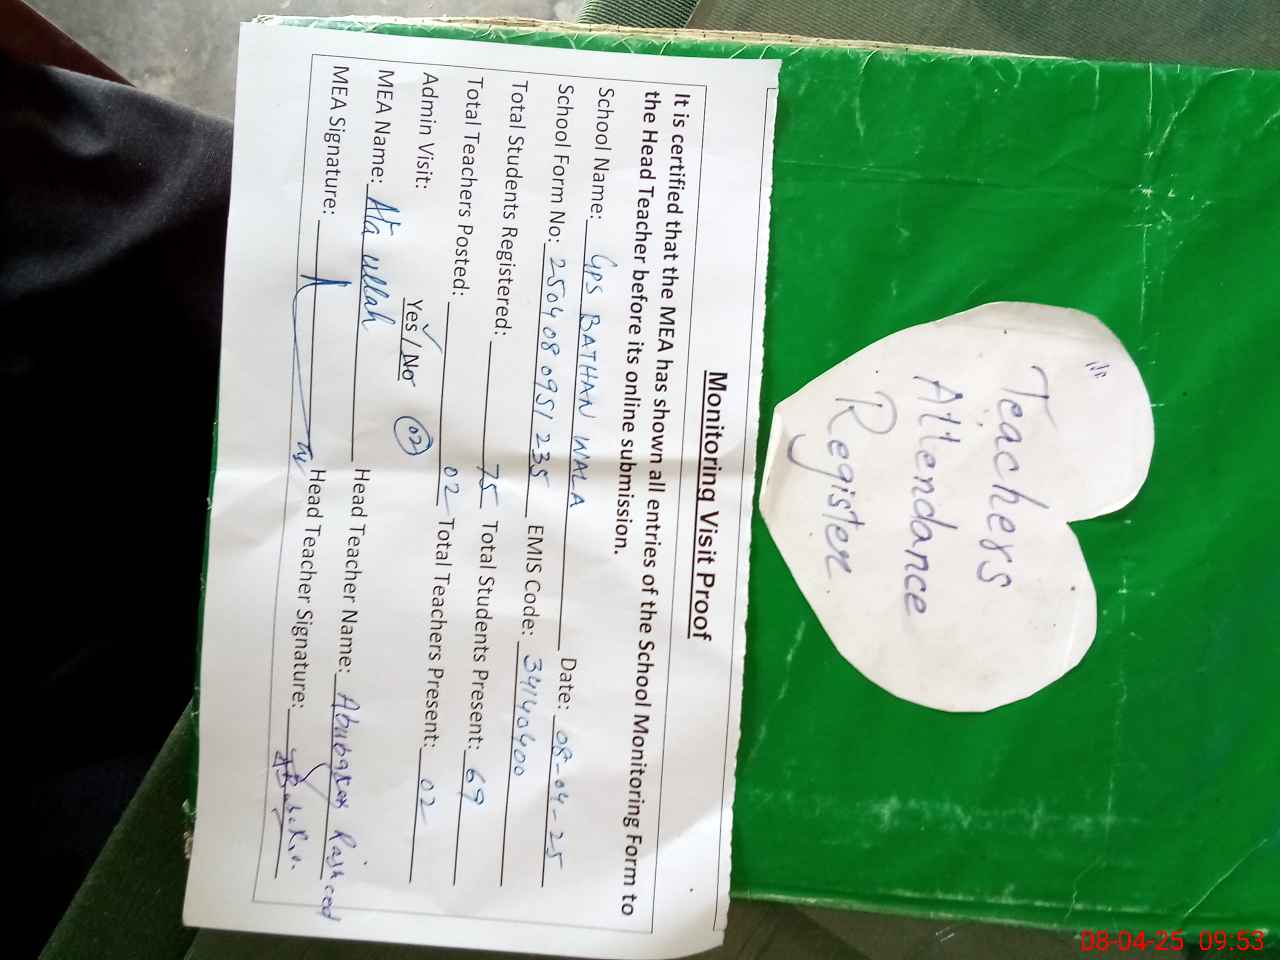 Teachers
Attendance
Register
Monitoring Visit Proof
It is certified that the MEA has shown all entries of the School Monitoring Form to
the Head Teacher before its online submission.
School Name: GPS BATHAN WALA Date: 08-04-25
School Form No: 250408 0951 235 EMIS Code: 34140400
Total Students Registered: 75 Total Students Present: 69
Total Teachers Posted: 02 Total Teachers Present: 02
Admin Visit: Yes / No 02
MEA Name: Ata ullah Head Teacher Name: Abubakar Rasheed
MEA Signature: Head Teacher Signature:
08-04-25 09:53